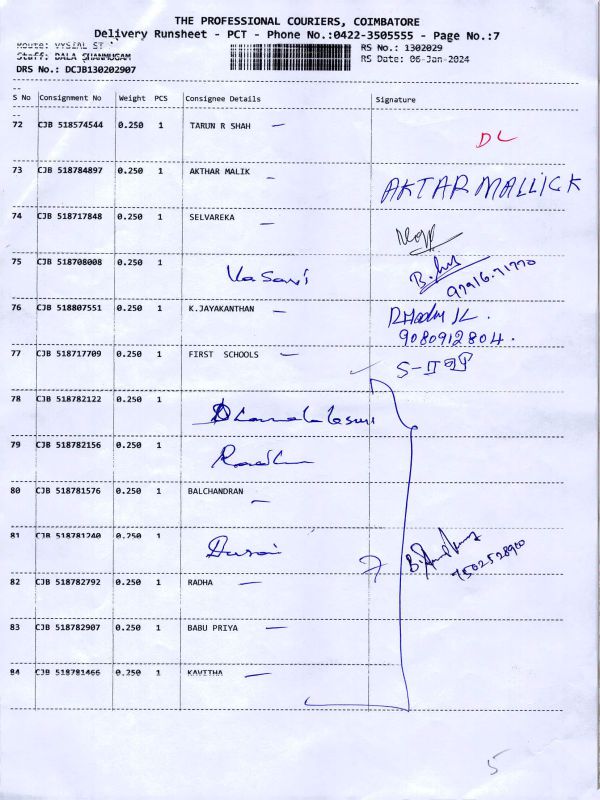 THE PROFESSIONAL COURIERS, COIMBATORE
Delivery Runsheet - PCT - Phone No.:0422-3505555 - Page No.:7
Route: VYSIAL ST
RS No.: 1302029
Staff: BALA SHANMUGAM
RS Date: 06-Jan-2024
DRS No.: DCJB130202907
S No Consignment No Weight PCS Consignee Details Signature
72 CJB 518574544 0.250 1 TARUN R SHAH —
DL
73 CJB 518784897 0.250 1 AKTHAR MALIK —
AKTAR MALLICK
74 CJB 518717848 0.250 1 SELVAREKA —
75 CJB 518708008 0.250 1 Vasavi
97916-71770
76 CJB 518807551 0.250 1 K.JAYAKANTHAN —
9080912804.
77 CJB 518717709 0.250 1 FIRST SCHOOLS —
78 CJB 518782122 0.250 1
79 CJB 518782156 0.250 1 Radha
80 CJB 518781576 0.250 1 BALCHANDRAN —
81 CJB 518781240 0.250 1 Durai
7502528900
82 CJB 518782792 0.250 1 RADHA —
83 CJB 518782907 0.250 1 BABU PRIYA —
84 CJB 518781466 0.250 1 KAVITHA —
5